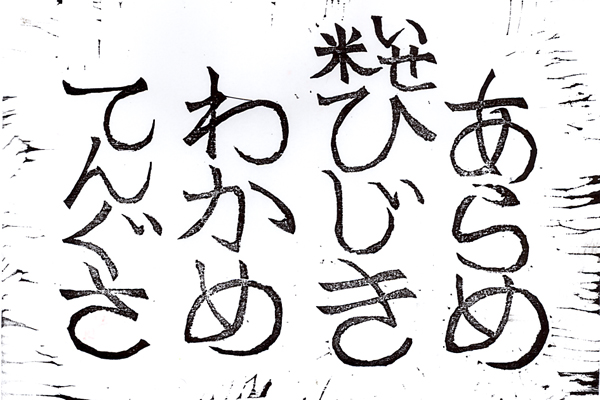 あらめ
いせ米ひじき
わかめ
てんぐさ